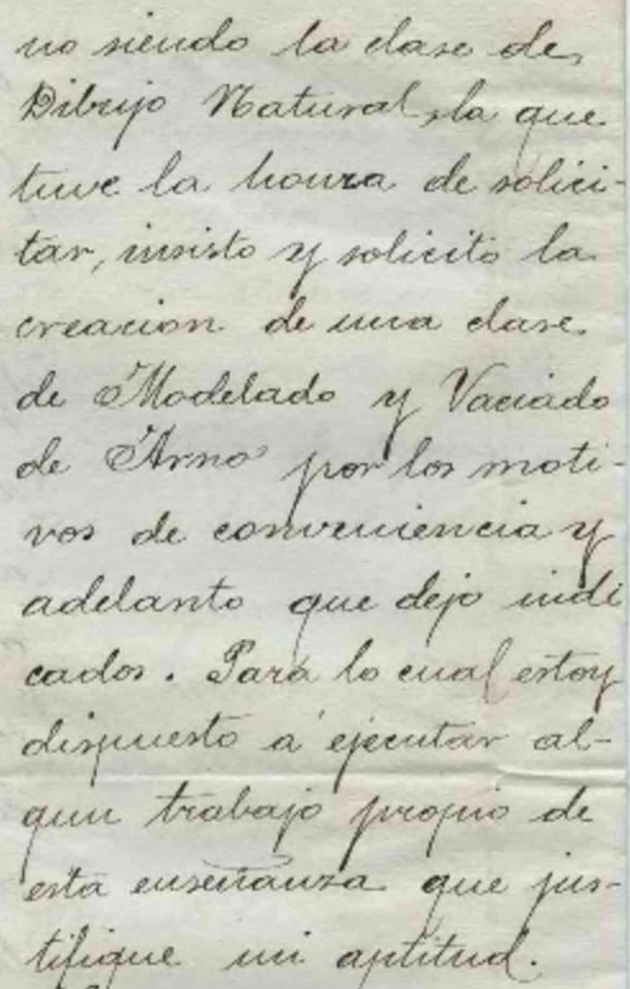 no siendo la clase de
Dibujo Natural, la que
tuve la honra de solici-
tar, insisto y solicito la
creacion de una clase
de Modelado y Vaciado
de Arno por los moti-
vos de conveniencia y
adelanto que dejo indi
cados. Para lo cual estoy
dispuesto á ejecutar al-
gun trabajo propio de
esta enseñanza que jus-
tifique mi aptitud.